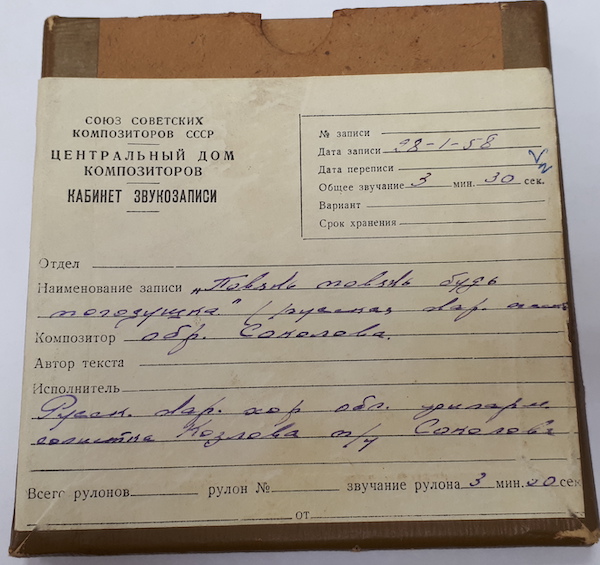 СОЮЗ СОВЕТСКИХ
КОМПОЗИТОРОВ СССР
ЦЕНТРАЛЬНЫЙ ДОМ
КОМПОЗИТОРОВ
КАБИНЕТ ЗВУКОЗАПИСИ
№ записи
Дата записи 28-1-58
Дата переписи
Общее звучание 3 мин. 30 сек.
Вариант
Срок хранения
Отдел
Наименование записи „Повянь повянь будь
погодушка" (русская нар.
Композитор обр. Соколова.
Автор текста
Исполнитель
Русск. нар. хор обл. филарм.
солистка Козлова п/у Соколова
Всего рулонов рулон № звучание рулона 3 мин. 20 сек
от